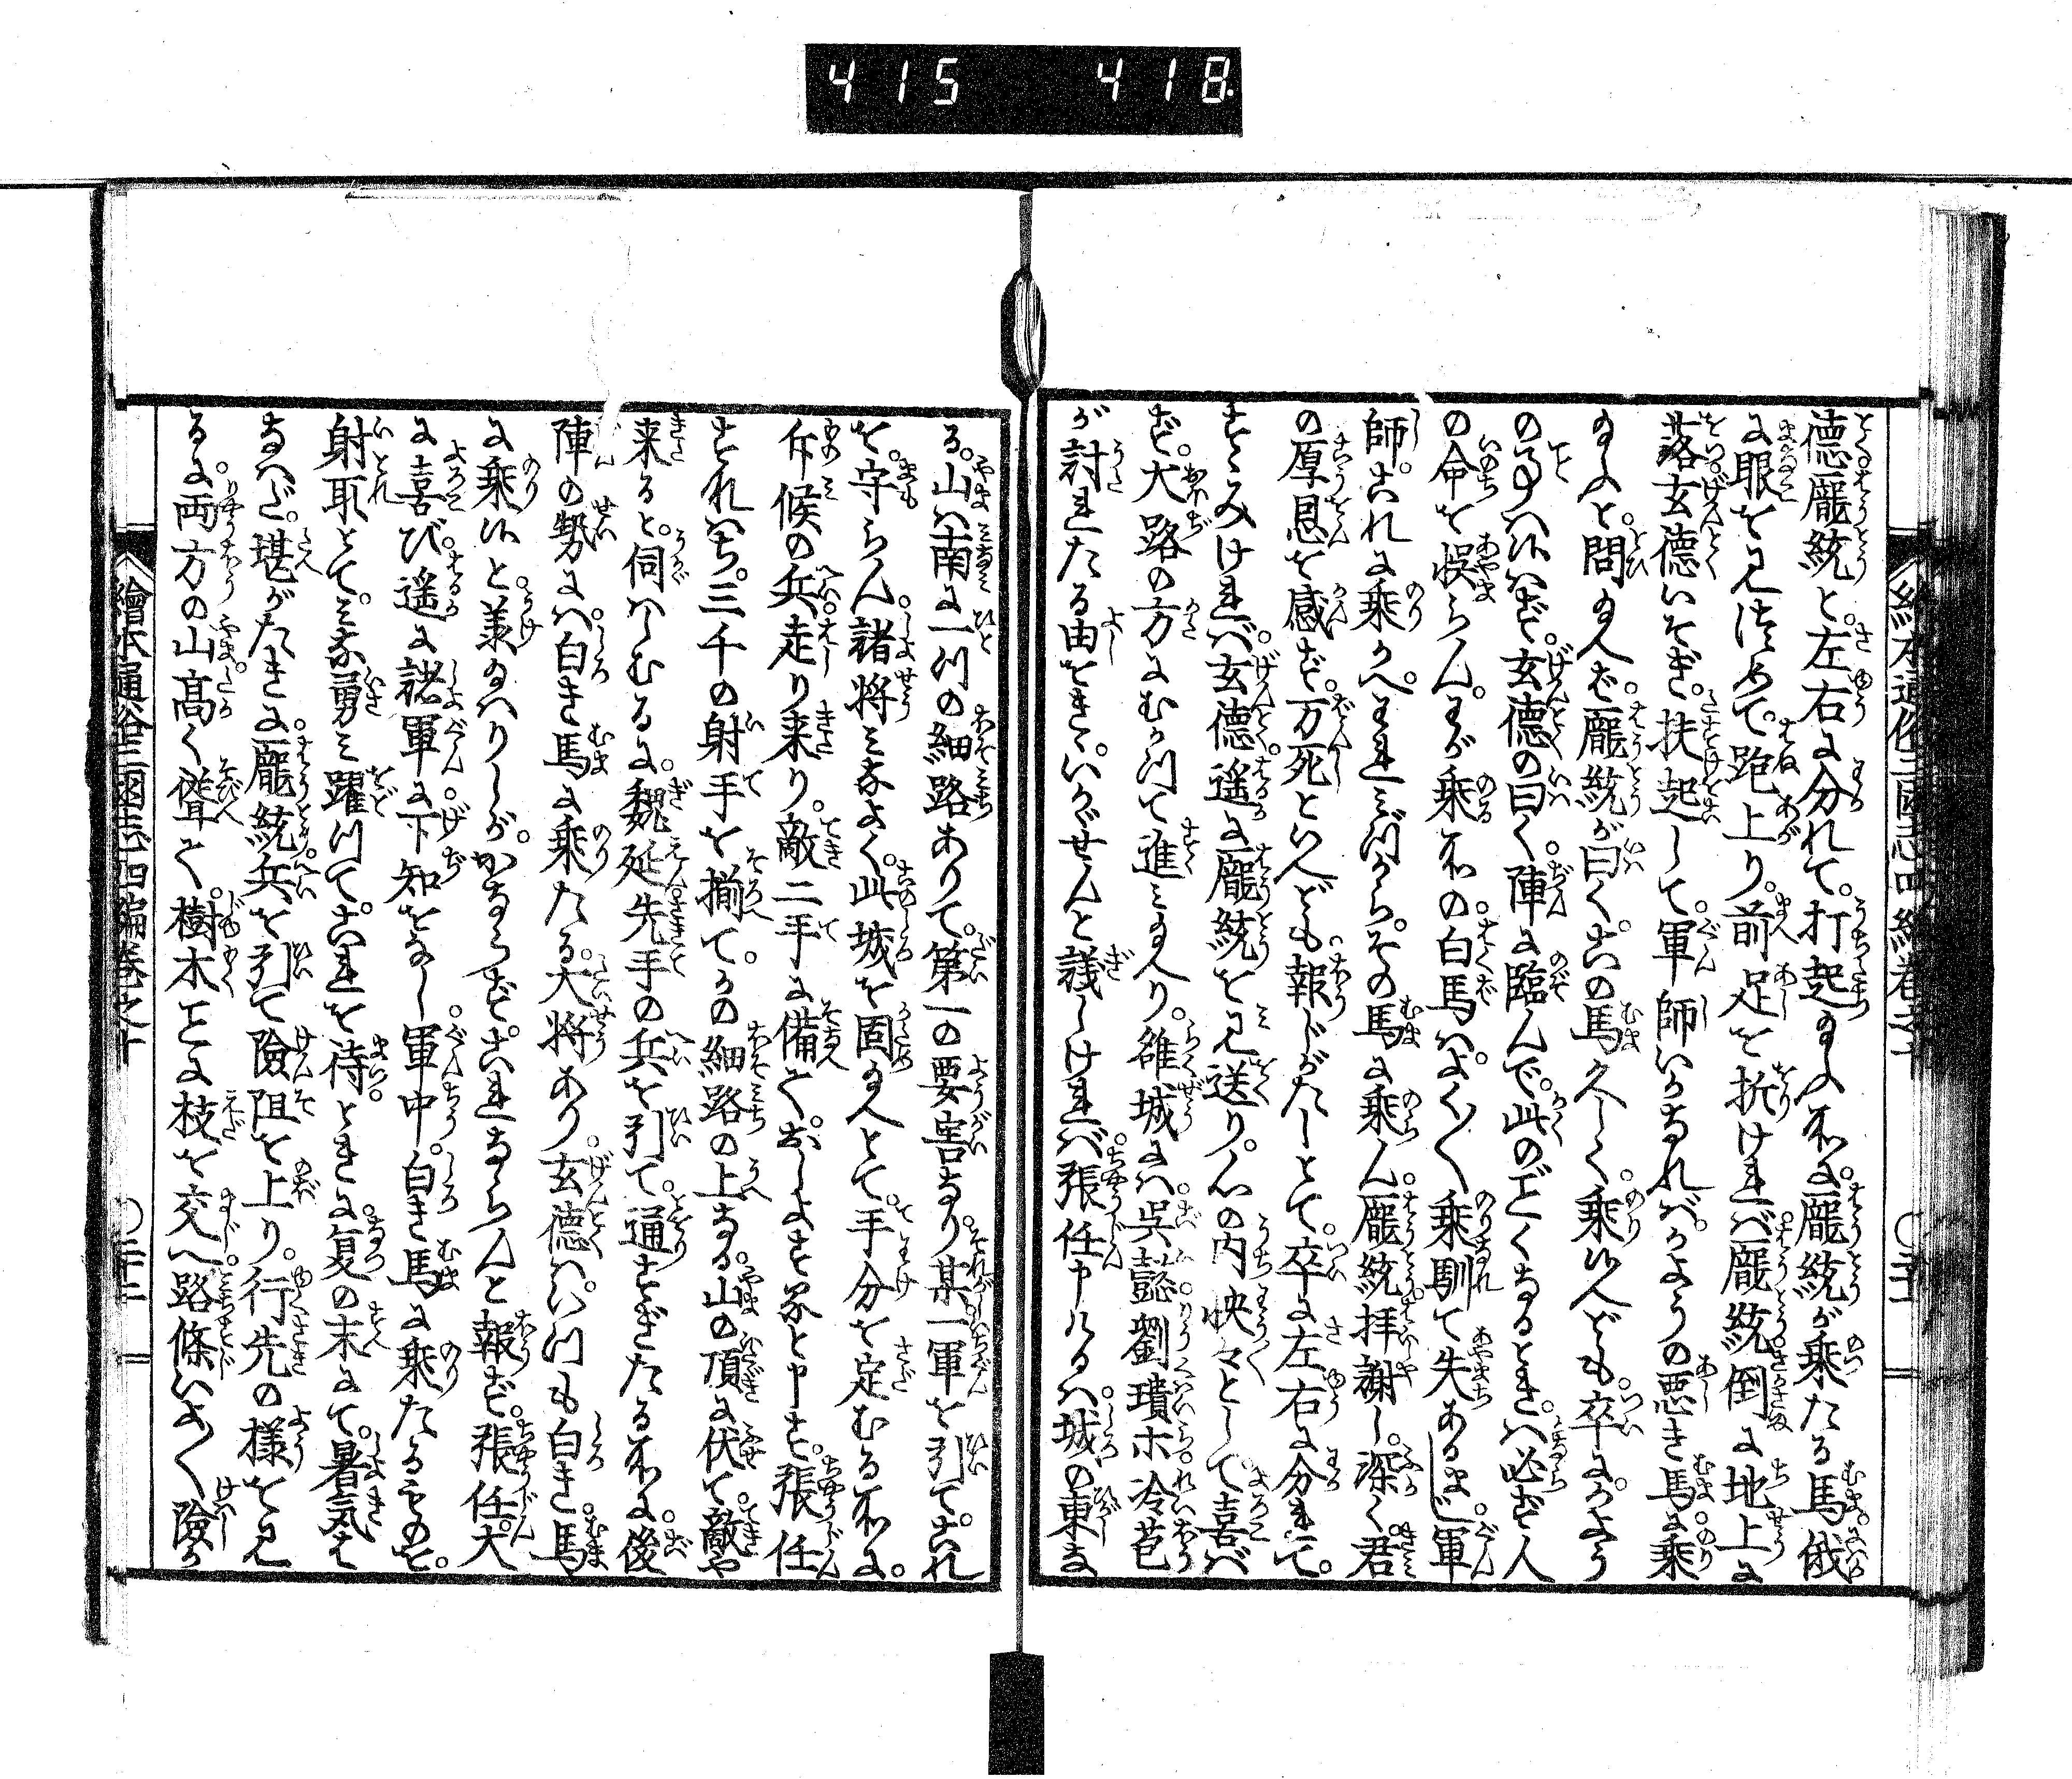 415 418
繪本通俗三國志四編巻之十
徳龐統と。左右に分れて。打起給ふ所に。龐統が乗たる馬。俄
に眼を見はりて。跑上り。前足を折ければ。龐統倒に地上に
落。玄徳いそぎ。扶起して。軍師いかなれば。かやうの悪き馬に乗
給ふと。問給へば。龐統が曰く。この馬久しく。乗候へども。卒に。かやう
の事ハ候はず。玄徳の曰く。陣に臨んで。此のごとくなるときハ。必ず人
の命を悞らん。わが乗所の白馬は。よく〳〵乗馴て失あるまじ。軍
師。これに乗かへ。われみづから。その馬に乗ん。龐統。拝謝し。深く。君
の厚恩を感ず。万死といへども。報じがたしとて。卒に左右に分れて。
すゝみければ。玄徳。遥に龐統を見送り。心の内怏々として喜ば
ず。大路の方にむかつて進み給へり。雒城にハ。呉懿。劉璝ホ。冷苞
が討れたる由をきゝ。いかゞせんと議しければ。張任申けるハ。城の東ま
る。山ハ南に一ツの細路ありて。第一の要害なり。某一軍を引て。これ
を。守らん。諸将みなよく。此城を固給へとて。手分を定むる所に。
斥候の兵走り来り。敵二手に備て。おしよせ候と申す。張任
すハれハち。三千の射手を揃て。かの細路の上なる。山の頂に伏て。敵や
来ると。伺ハしむるに。魏延先手の兵を引て。通すぎたる所に。後
陣の勢にハ。白き馬に乗たる。大将あり。玄徳ハ。いつも白き馬
に乗候と。義給へりしが。かならず。これならんと報ず。張任。大
に喜び。遥に諸軍に下知をなし。軍中。白き馬に乗たるものを。
射取とて。みな勇み躍つて。これを待。ときに。夏の末にて。暑気も
なへだ。堪がたきに。龐統。兵を引て險阻を上り。行先の様を見
るに。両方の山高く聳て。樹木ことに枝を交へ。路條いよ〳〵險か
繪本通俗三國志四編巻之十 〇二十二